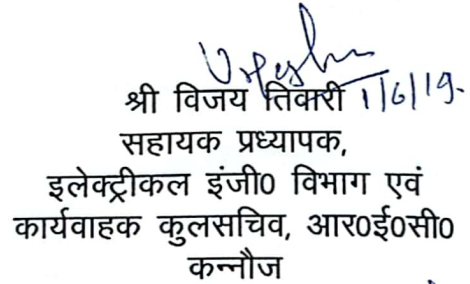 श्री विजय तिवारी 1/6/19.
सहायक प्रध्यापक,
इलेक्ट्रीकल इंजी0 विभाग एवं
कार्यवाहक कुलसचिव, आर0ई0सी0
कन्नौज